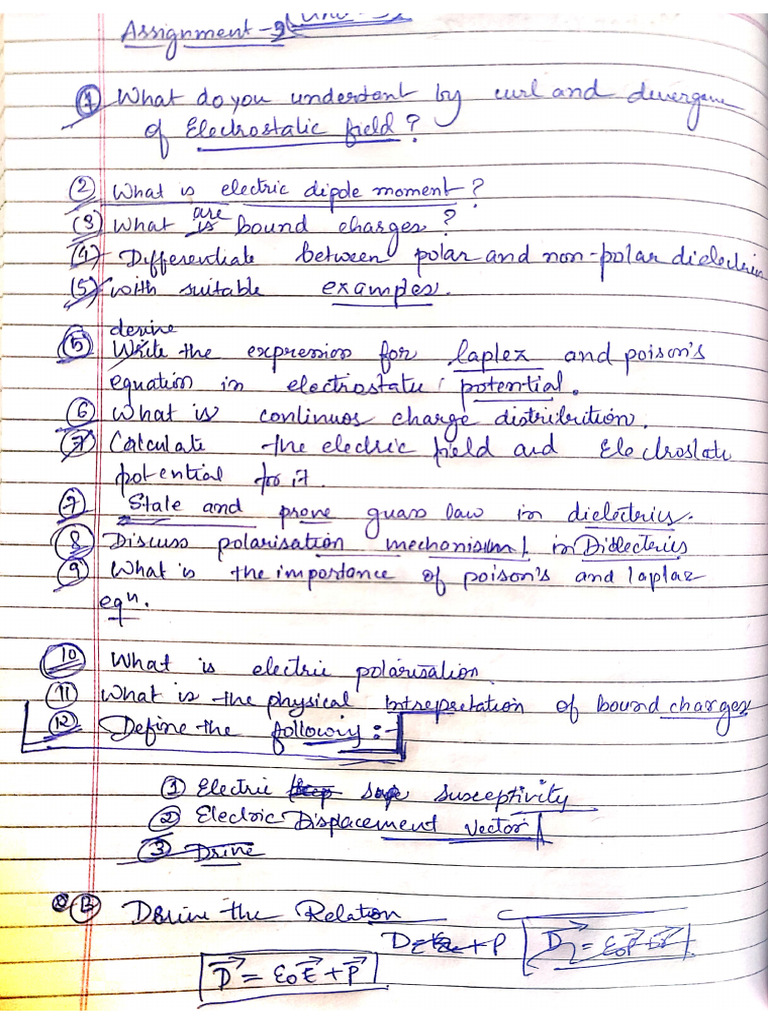 Assignment - 2
① What do you understant by curl and divergene
of Electrostatic field ?
② What is electric dipole moment ?
(3) What are is bound charges ?
(4) Differentiate between polar and non-polar dielectrics
(5) with suitable examples.
derive
⑤ Write the expression for laplex and poison's
equation in electrostatic potential.
⑥ What is continuos charge distribution.
⑦ Calculate the electric field and Electrostatic
potential for it.
⑦ State and prove guass law in dielectrics.
⑧ Discuss polarisation mechanism in Dielectrics
⑨ What is the importance of poison's and laplaz
eqn.
⑩ What is electric polarisation.
⑪ What is the physical intrepretation of bound charges
⑫ Define the following :-
① Electric susceptivity
② Electric Displacement vector
③ Drive
⑬ Derive the Relation
D + P D = ε₀
D = ε₀E + P